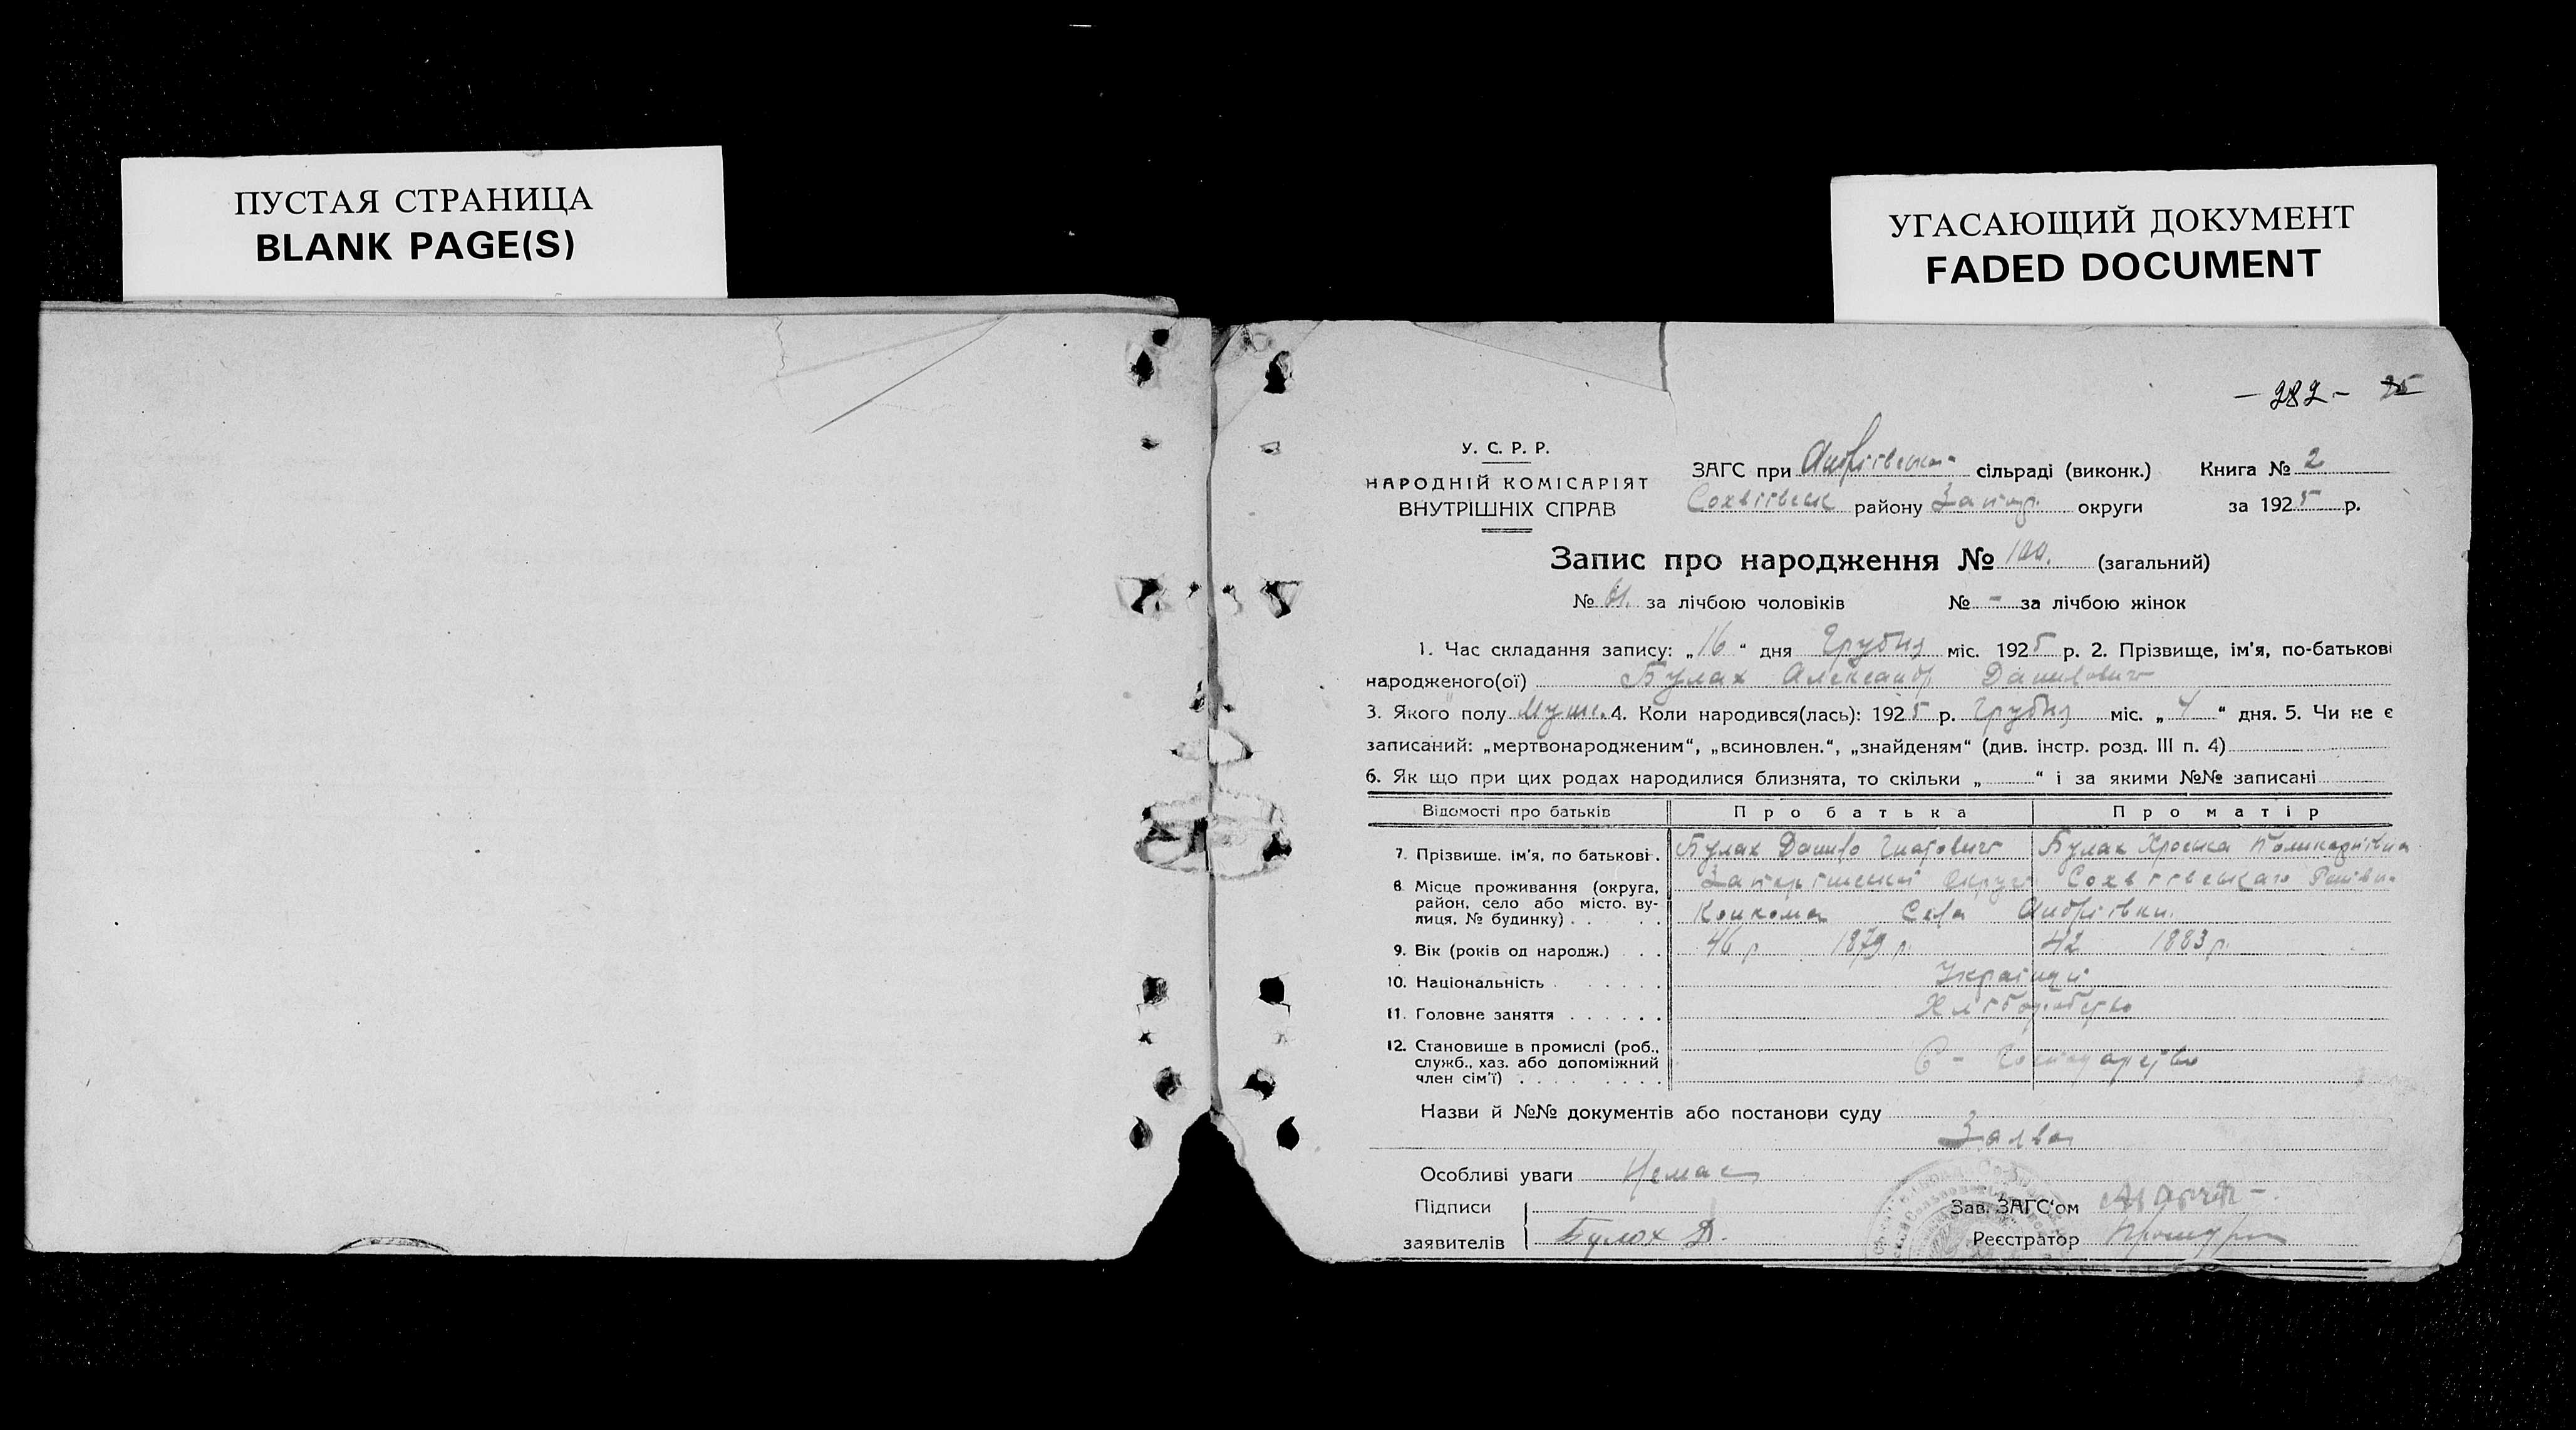 ПУСТАЯ СТРАНИЦА
BLANK PAGE(S)
УГАСАЮЩИЙ ДОКУМЕНТ
FADED DOCUMENT
— 282 —
У. С. Р. Р.
НАРОДНІЙ КОМІСАРІЯТ
ВНУТРІШНІХ СПРАВ
ЗАГС при сільраді (виконк.) Книга № 2
району Запор. округи за 1925 р.
Запис про народження № 100. (загальний)
№ 61. за лічбою чоловіків № - за лічбою жінок
1. Час складання запису: „16“ дня Грудня міс. 1925 р. 2. Прізвище, ім'я, по-батькові
народженого(ої) Булах Александр Данилович
3. Якого полу Муж. 4. Коли народився(лась): 1925 р. Грудня міс. „4“ дня. 5. Чи не є
записаний: „мертвонародженим“, „всиновлен.“, „знайденям“ (див. інстр. розд. III п. 4)
6. Як що при цих родах народилися близнята, то скільки „ “ і за якими №№ записані
Відомості про батьків Про батька Про матір
7. Прізвище, ім'я, по батькові. Булах Данило Булах
8. Місце проживання (округа,
район, село або місто, ву-
лиця, № будинку)
Села Андріївки.
9. Вік (років од народж.) 46 р 1879 р. 42 1883 р.
10. Національність Українці
11. Головне заняття Хліборобство
12. Становище в промислі (роб.,
служб., хаз. або допоміжний
член сім'ї)
Назви й №№ документів або постанови суду
Особливі уваги Немає
Підписи
заявителів Булах Д.
Зав. ЗАГС'ом
Реєстратор